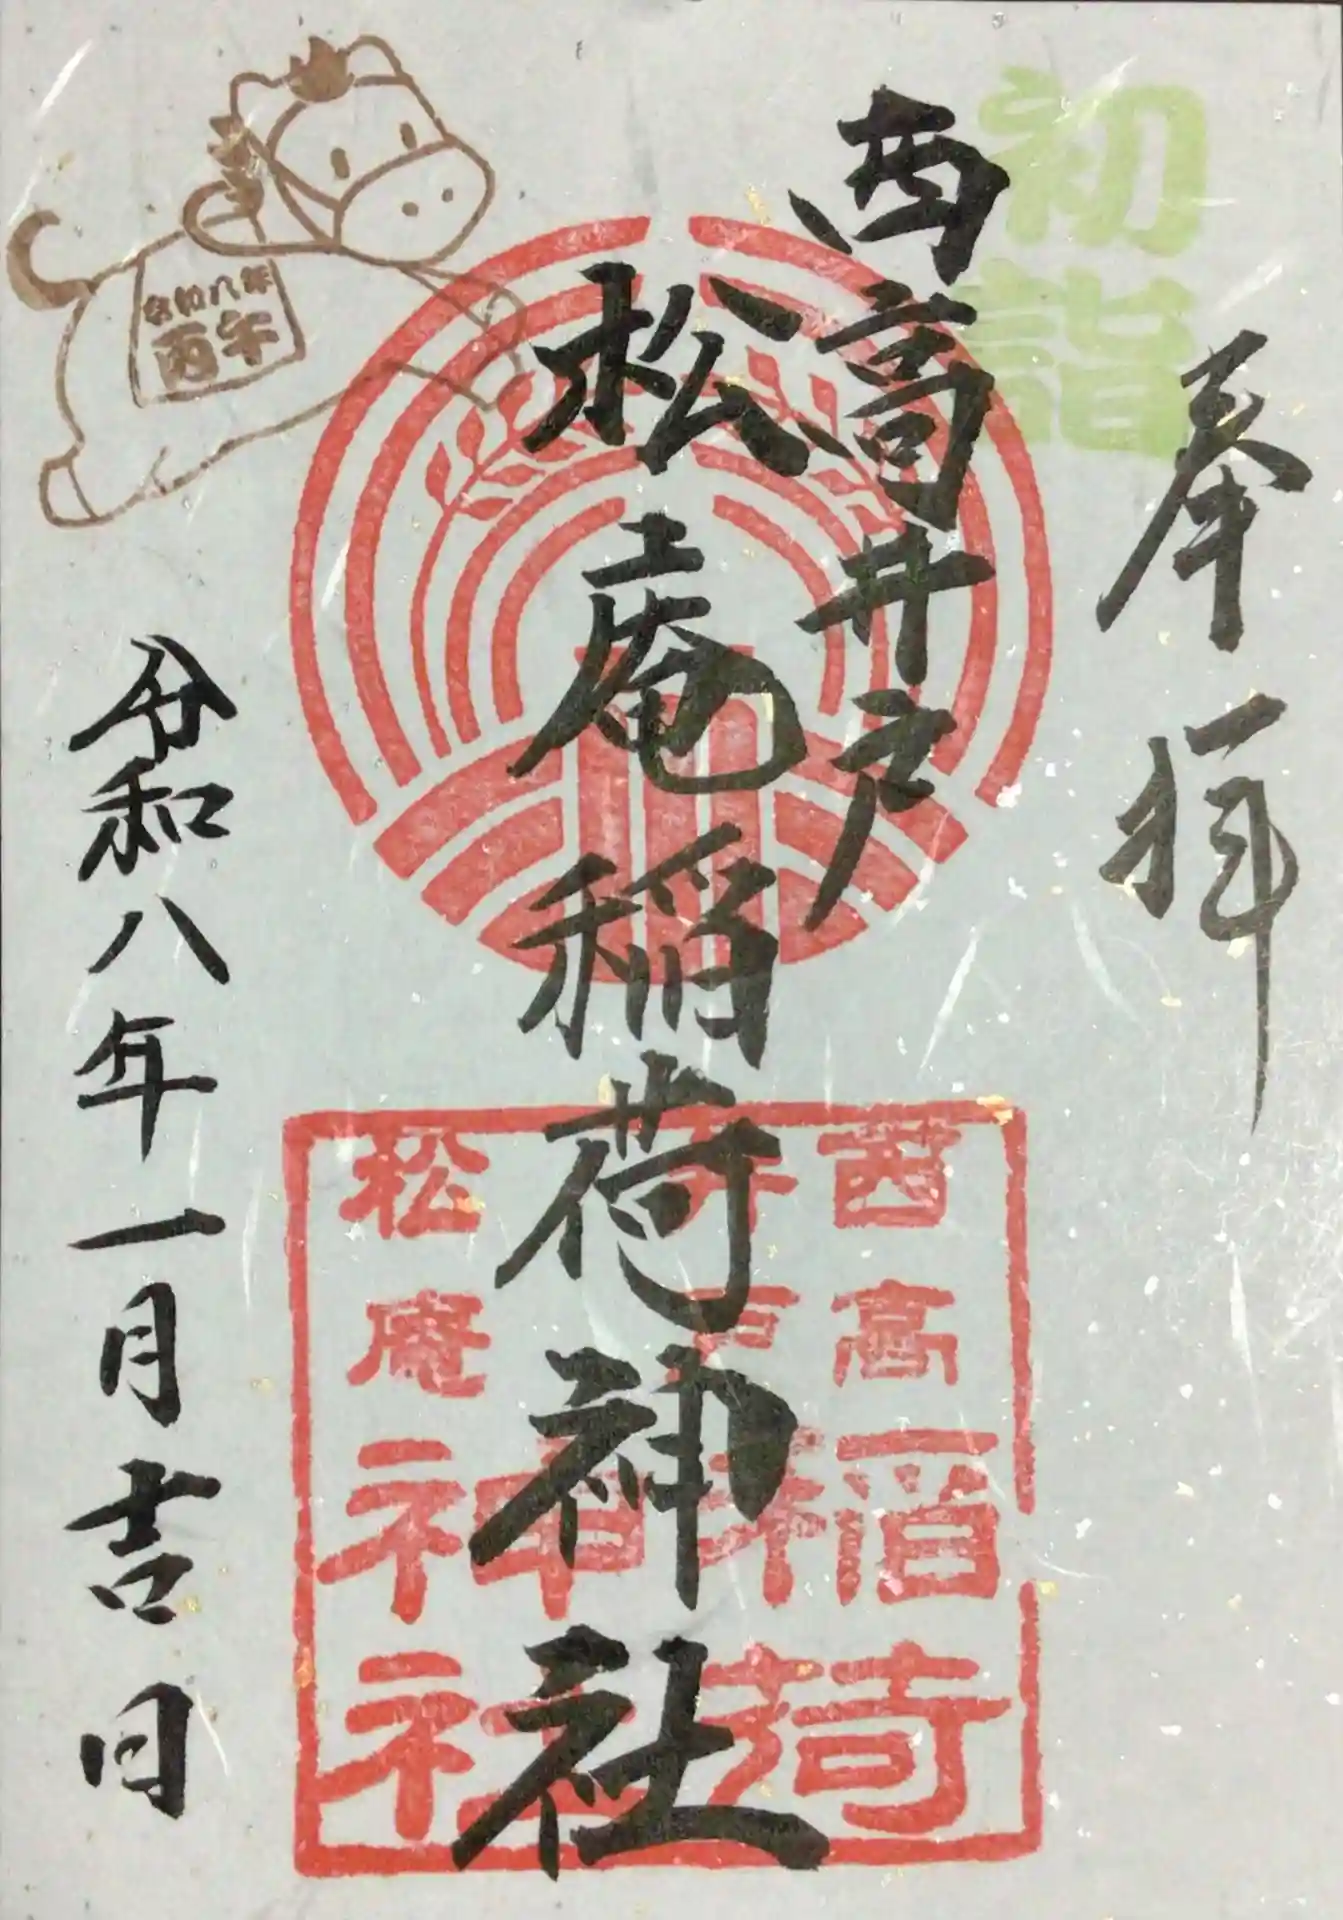 初詣
奉拝
西高井戸
松庵稲荷神社
令和八年一月吉日
令和八年
丙午
西高
井戸
稲荷
松庵
神社